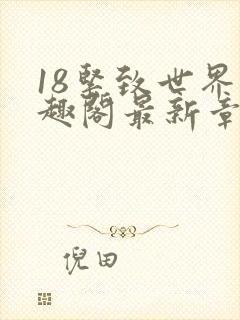 18紧致世界
趣阁最新章
倪田